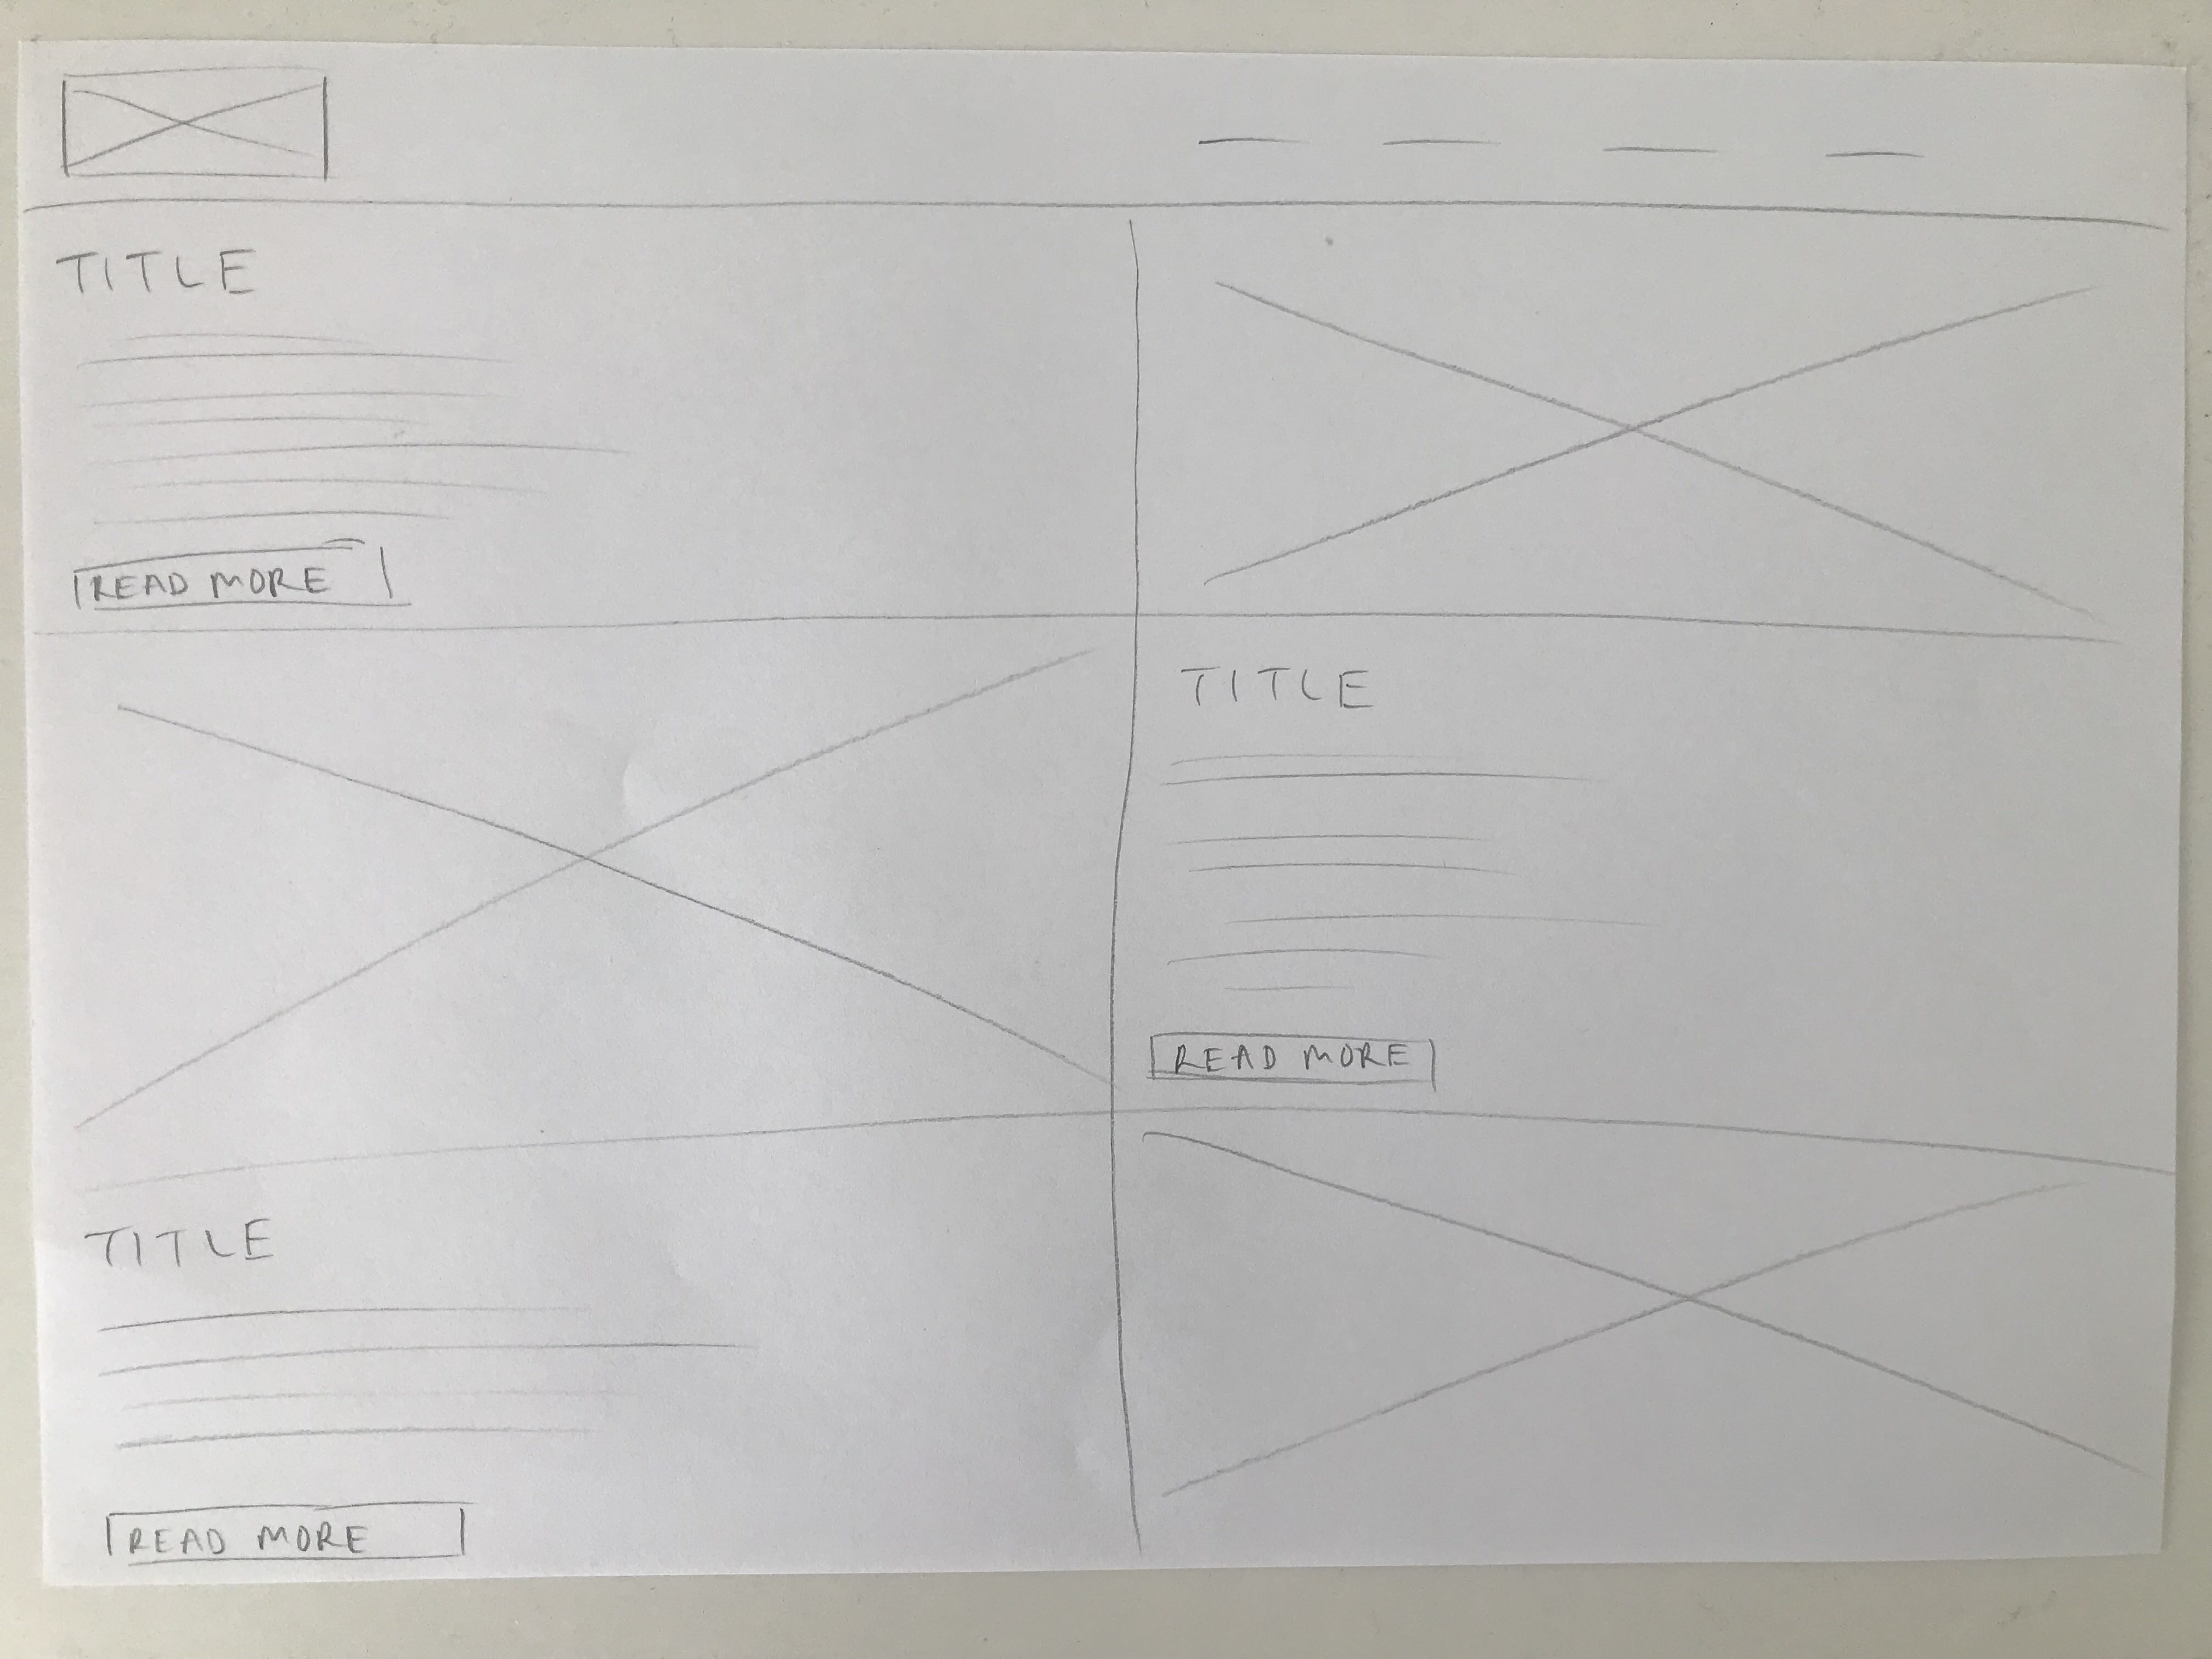 TITLE
READ MORE
TITLE
READ MORE
TITLE
READ MORE